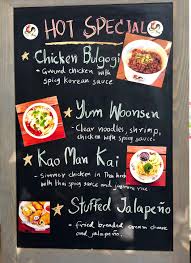 HOT SPECIAL
Chicken Bulgogi
Ground chicken with
spicy korean sauce
Yum Woonsen
Clear noodles, shrimp,
chicken with spicy sauce
Kao Man Kai
chicken in Thai herb
with thai spicy sauce and jasmine rice
Stuffed Jalapeño
fried breaded cream cheese
and jalapeño.